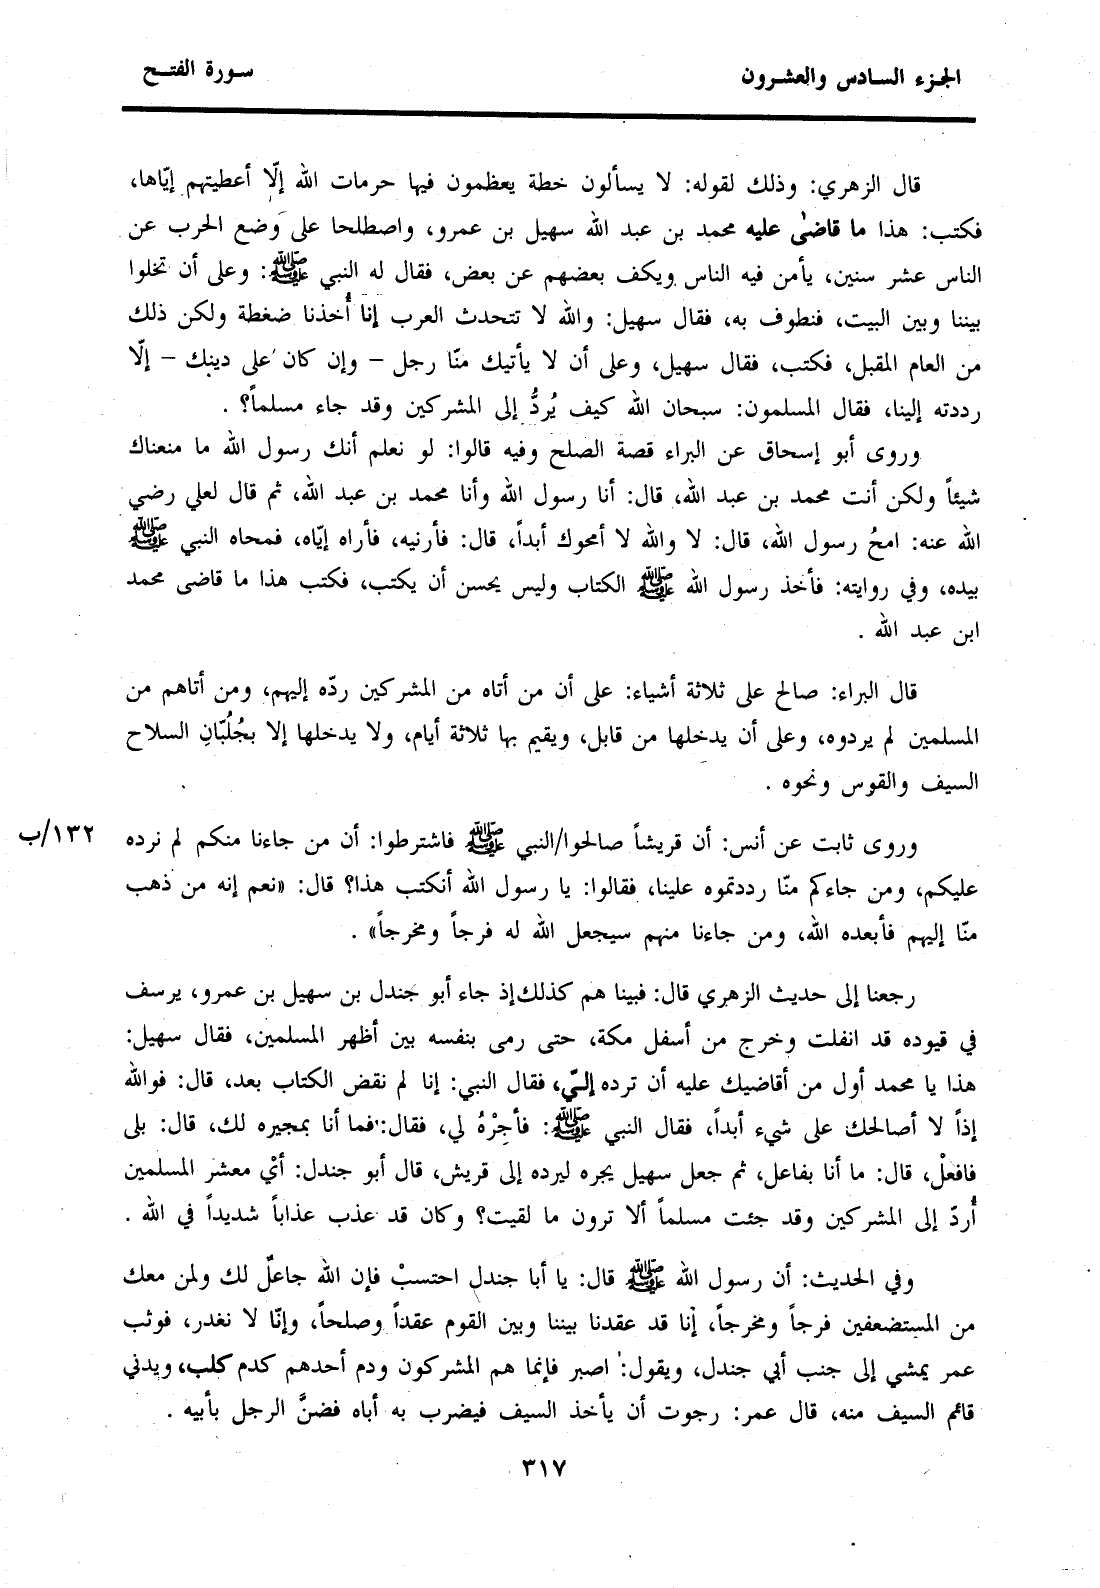 الجزء السادس والعشرون
سورة الفتح
قال الزهري: وذلك لقوله: لا يسألون خطة يعظمون فيها حرمات الله إلّا أعطيتهم إيّاها،
فكتب: هذا ما قاضىٰ عليه محمد بن عبد الله سهيل بن عمرو، واصطلحا على وَضع الحرب عن
الناس عشر سنين، يأمن فيه الناس ويكف بعضهم عن بعض، فقال له النبي ﷺ: وعلى أن تخلوا
بيننا وبين البيت، فنطوف به، فقال سهيل: والله لا تتحدث العرب إنا أُخذنا ضغطة ولكن ذلك
من العام المقبل، فكتب، فقال سهيل، وعلى أن لا يأتيك منّا رجل – وإن كان على دينك – إلّا
رددته إلينا، فقال المسلمون: سبحان الله كيف يُردُّ إلى المشركين وقد جاء مسلماً؟ .
وروى أبو إسحاق عن البراء قصة الصلح وفيه قالوا: لو نعلم أنك رسول الله ما منعناك
شيئاً ولكن أنت محمد بن عبد الله، قال: أنا رسول الله وأنا محمد بن عبد الله، ثم قال لعلي رضي
الله عنه: امحُ رسول الله، قال: لا والله لا أمحوك أبداً، قال: فأرنيه، فأراه إيّاه، فمحاه النبي ﷺ
بيده، وفي روايته: فأخذ رسول الله ﷺ الكتاب وليس يحسن أن يكتب، فكتب هذا ما قاضى محمد
ابن عبد الله .
قال البراء: صالح على ثلاثة أشياء: على أن من أتاه من المشركين ردّه إليهم، ومن أتاهم من
المسلمين لم يردوه، وعلى أن يدخلها من قابل، ويقيم بها ثلاثة أيام، ولا يدخلها إلا بجُلُبّانِ السلاح
السيف والقوس ونحوه .
وروى ثابت عن أنس: أن قريشاً صالحوا/النبي ﷺ فاشترطوا: أن من جاءنا منكم لم نرده
١٣٢/ب
عليكم، ومن جاءكم منّا رددتموه علينا، فقالوا: يا رسول الله أنكتب هذا؟ قال: «نعم إنه من ذهب
منّا إليهم فأبعده الله، ومن جاءنا منهم سيجعل الله له فرجاً ومخرجاً» .
رجعنا إلى حديث الزهري قال: فبينا هم كذلك إذ جاء أبو جندل بن سهيل بن عمرو، يرسف
في قيوده قد انفلت وخرج من أسفل مكة، حتى رمى بنفسه بين أظهر المسلمين، فقال سهيل:
هذا يا محمد أول من أقاضيك عليه أن ترده إليّ، فقال النبي: إنا لم نقض الكتاب بعد، قال: فوالله
إذاً لا أصالحك على شيء أبداً، فقال النبي ﷺ: فأجِرْهُ لي، فقال: فما أنا بمجيره لك، قال: بلى
فافعلْ، قال: ما أنا بفاعل، ثم جعل سهيل يجره ليرده إلى قريش، قال أبو جندل: أيْ معشر المسلمين
أُردّ إلى المشركين وقد جئت مسلماً ألا ترون ما لقيت؟ وكان قد عذب عذاباً شديداً في الله .
وفي الحديث: أن رسول الله ﷺ قال: يا أبا جندل احتسبْ فإن الله جاعلٌ لك ولمن معك
من المستضعفين فرجاً ومخرجاً، إنا قد عقدنا بيننا وبين القوم عقداً وصلحاً، وإنّا لا نغدر، فوثب
عمر يمشي إلى جنب أبي جندل، ويقول: اصبر فإنما هم المشركون ودم أحدهم كدم كلب، ويدني
قائم السيف منه، قال عمر: رجوت أن يأخذ السيف فيضرب به أباه فضنَّ الرجل بأبيه .
٣١٧